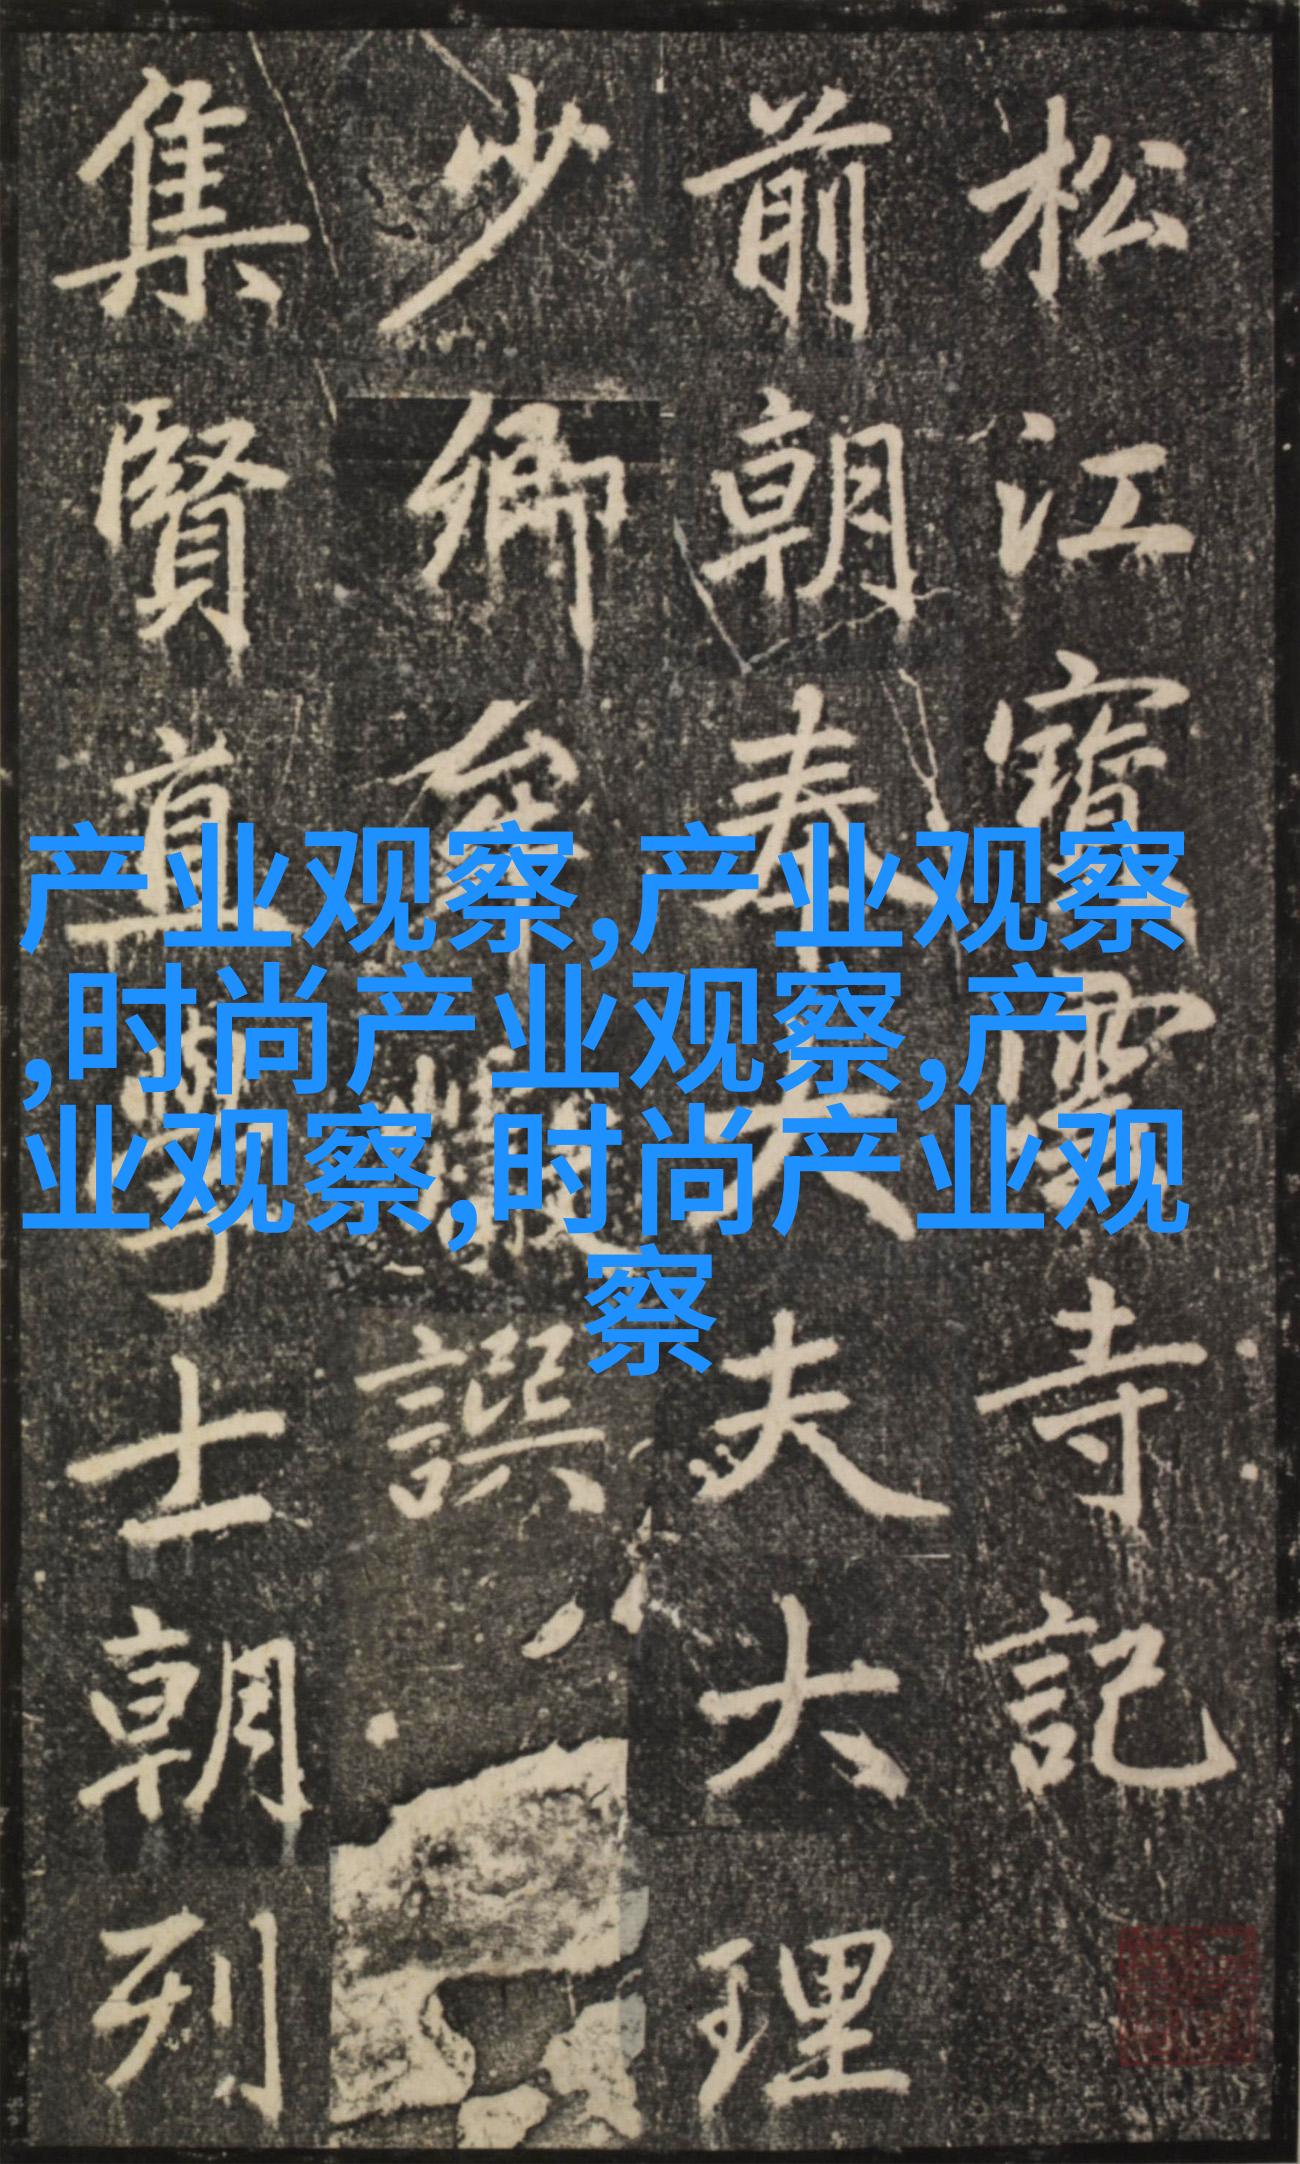 松江寶雲寺記
前朝奉大夫大理
少卿牟巘譔
集賢直學士朝列
产业观察,产业观察
,时尚产业观察,产
业观察,时尚产业观
察